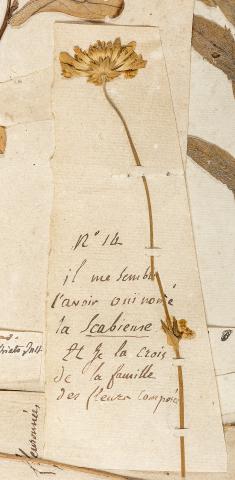 N° 14
il me semble
l'avoir oui nomé
la Scabieuse
Et Je la crois
de la famille
des fleurs composé
fleuronnées